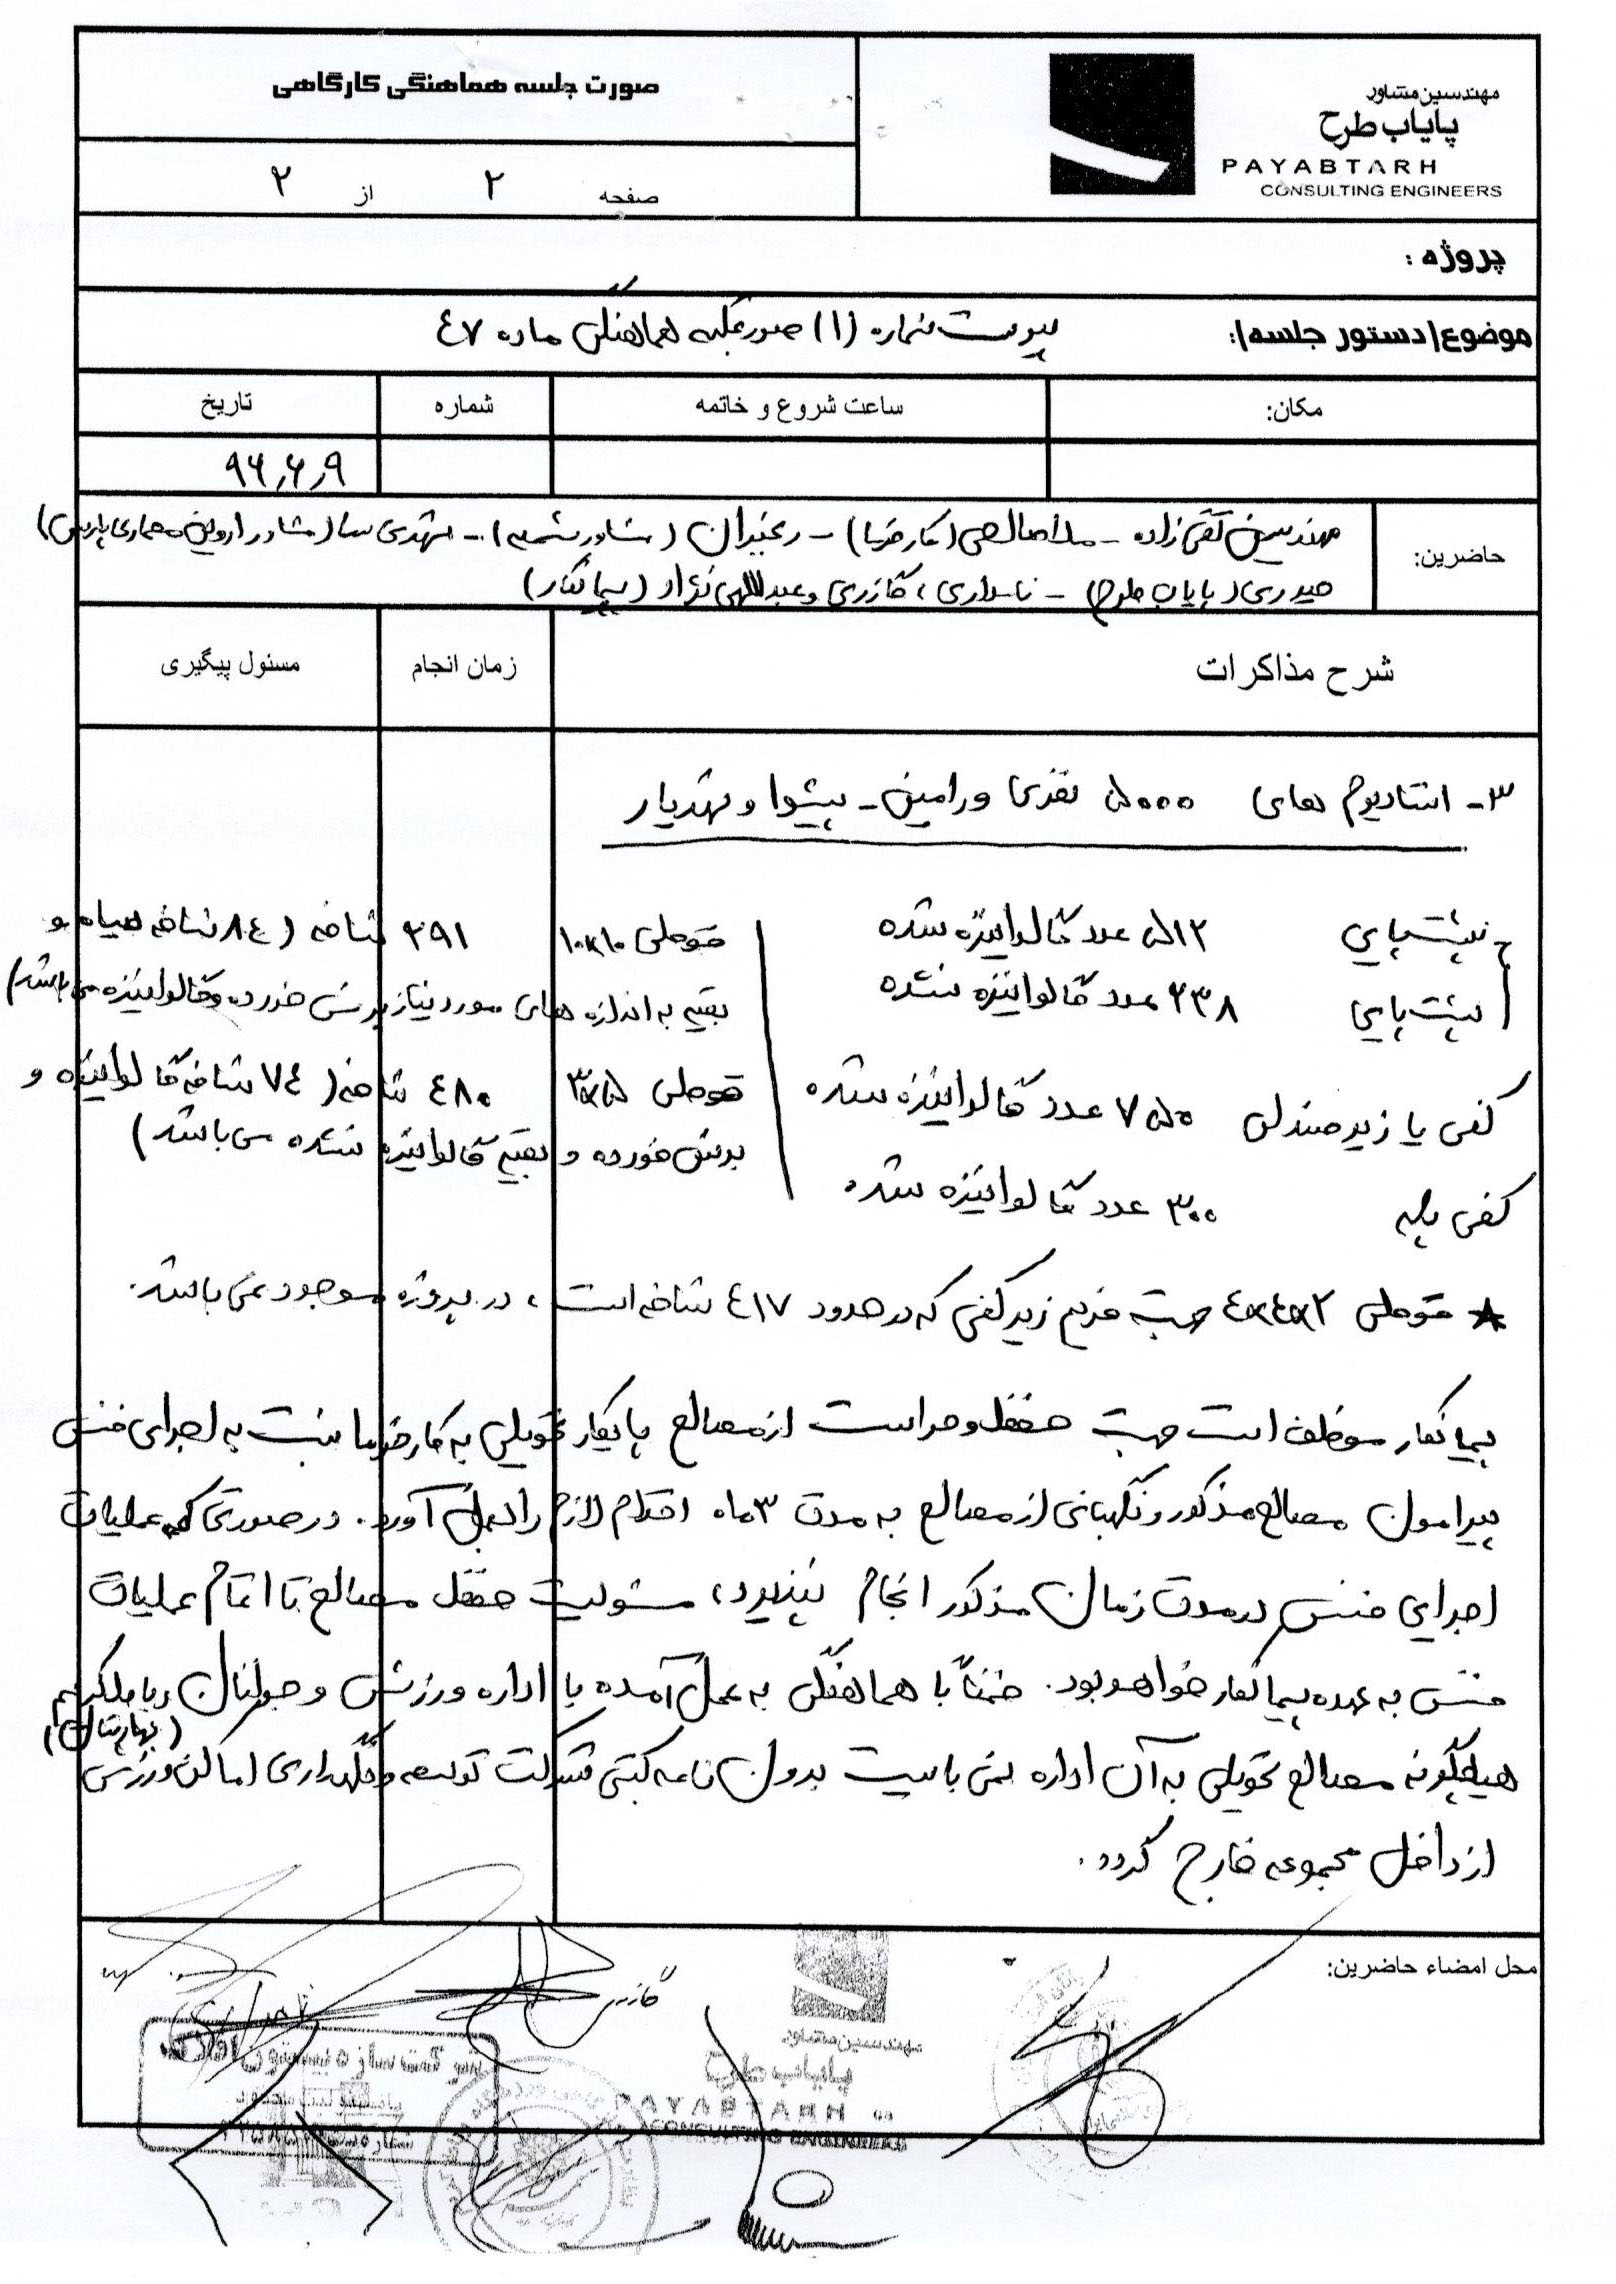 صورت جلسه هماهنگی کارگاهی
صفحه ۲ از ۲
مهندسین مشاور
پایاب طرح
PAYABTARH
CONSULTING ENGINEERS
پروژه :
موضوع/دستور جلسه: پیوست شماره (۱) صورتجلسه هماهنگی ماده ۴۷
مکان: ساعت شروع و خاتمه شماره تاریخ
۹۶,۶,۹
حاضرین: مهندسین تقی زاده - ملاصالحی (کارفرما) - رنجبران (مشاور - مهدی سا (مشاور معماری پارس)
حیدری (پایاب طرح) - نامداری، گازری و عبداللهی نژاد (پیمانکار)
شرح مذاکرات زمان انجام مسئول پیگیری
۳- استادیوم های ۵۰۰۰ نفری ورامین - پیشوا و شهریار
پشت پایی ۵۱۲ عدد گالوانیزه شده
پشت پایی ۲۳۸ عدد گالوانیزه نشده
کفی یا زیر صندلی ۷۵۰ عدد گالوانیزه شده
کفی پله ۳۰۰ عدد گالوانیزه شده.
قوطی ۱۰×۱۰ ۲۹۱ شاخه (۸۴ شاخه سیاه و
بقیه به اندازه های مورد نیاز برش خورده و گالوانیزه می باشد)
قوطی ۳×۵ ۴۸۰ شاخه (۷۴ شاخه گالوانیزه و
برش خورده و بقیه گالوانیزه نشده می باشد)
* قوطی ۴×۴×۲ جهت فریم زیر کفی که در حدود ۴۱۷ شاخه است، در پروژه موجود نمی باشد.
پیمانکار موظف است جهت حفظ و حراست از مصالح پایکار تحویلی به کارفرما نسبت به اجرای فنس
پیرامون مصالح مذکور و نگهبانی از مصالح به مدت ۳ ماه اقدام لازم را بعمل آورد. در صورتی که عملیات
اجرایی فنس در مدت زمان مذکور انجام نپذیرد، مسئولیت حفظ مصالح تا اتمام عملیات
فنس به عهده پیمانکار خواهد بود. ضمناً با هماهنگی به عمل آمده با اداره ورزش و جوانان
(بهارستان)
هیچگونه مصالح تحویلی به آن اداره نمی بایست بدون نامه کتبی شرکت توسعه و نگهداری اماکن ورزشی
از داخل مجموعه خارج گردد.
محل امضاء حاضرین:
گازری
مهندسین مشاور
پایاب طرح
PAYABTARH
CONSULTING ENGINEERS